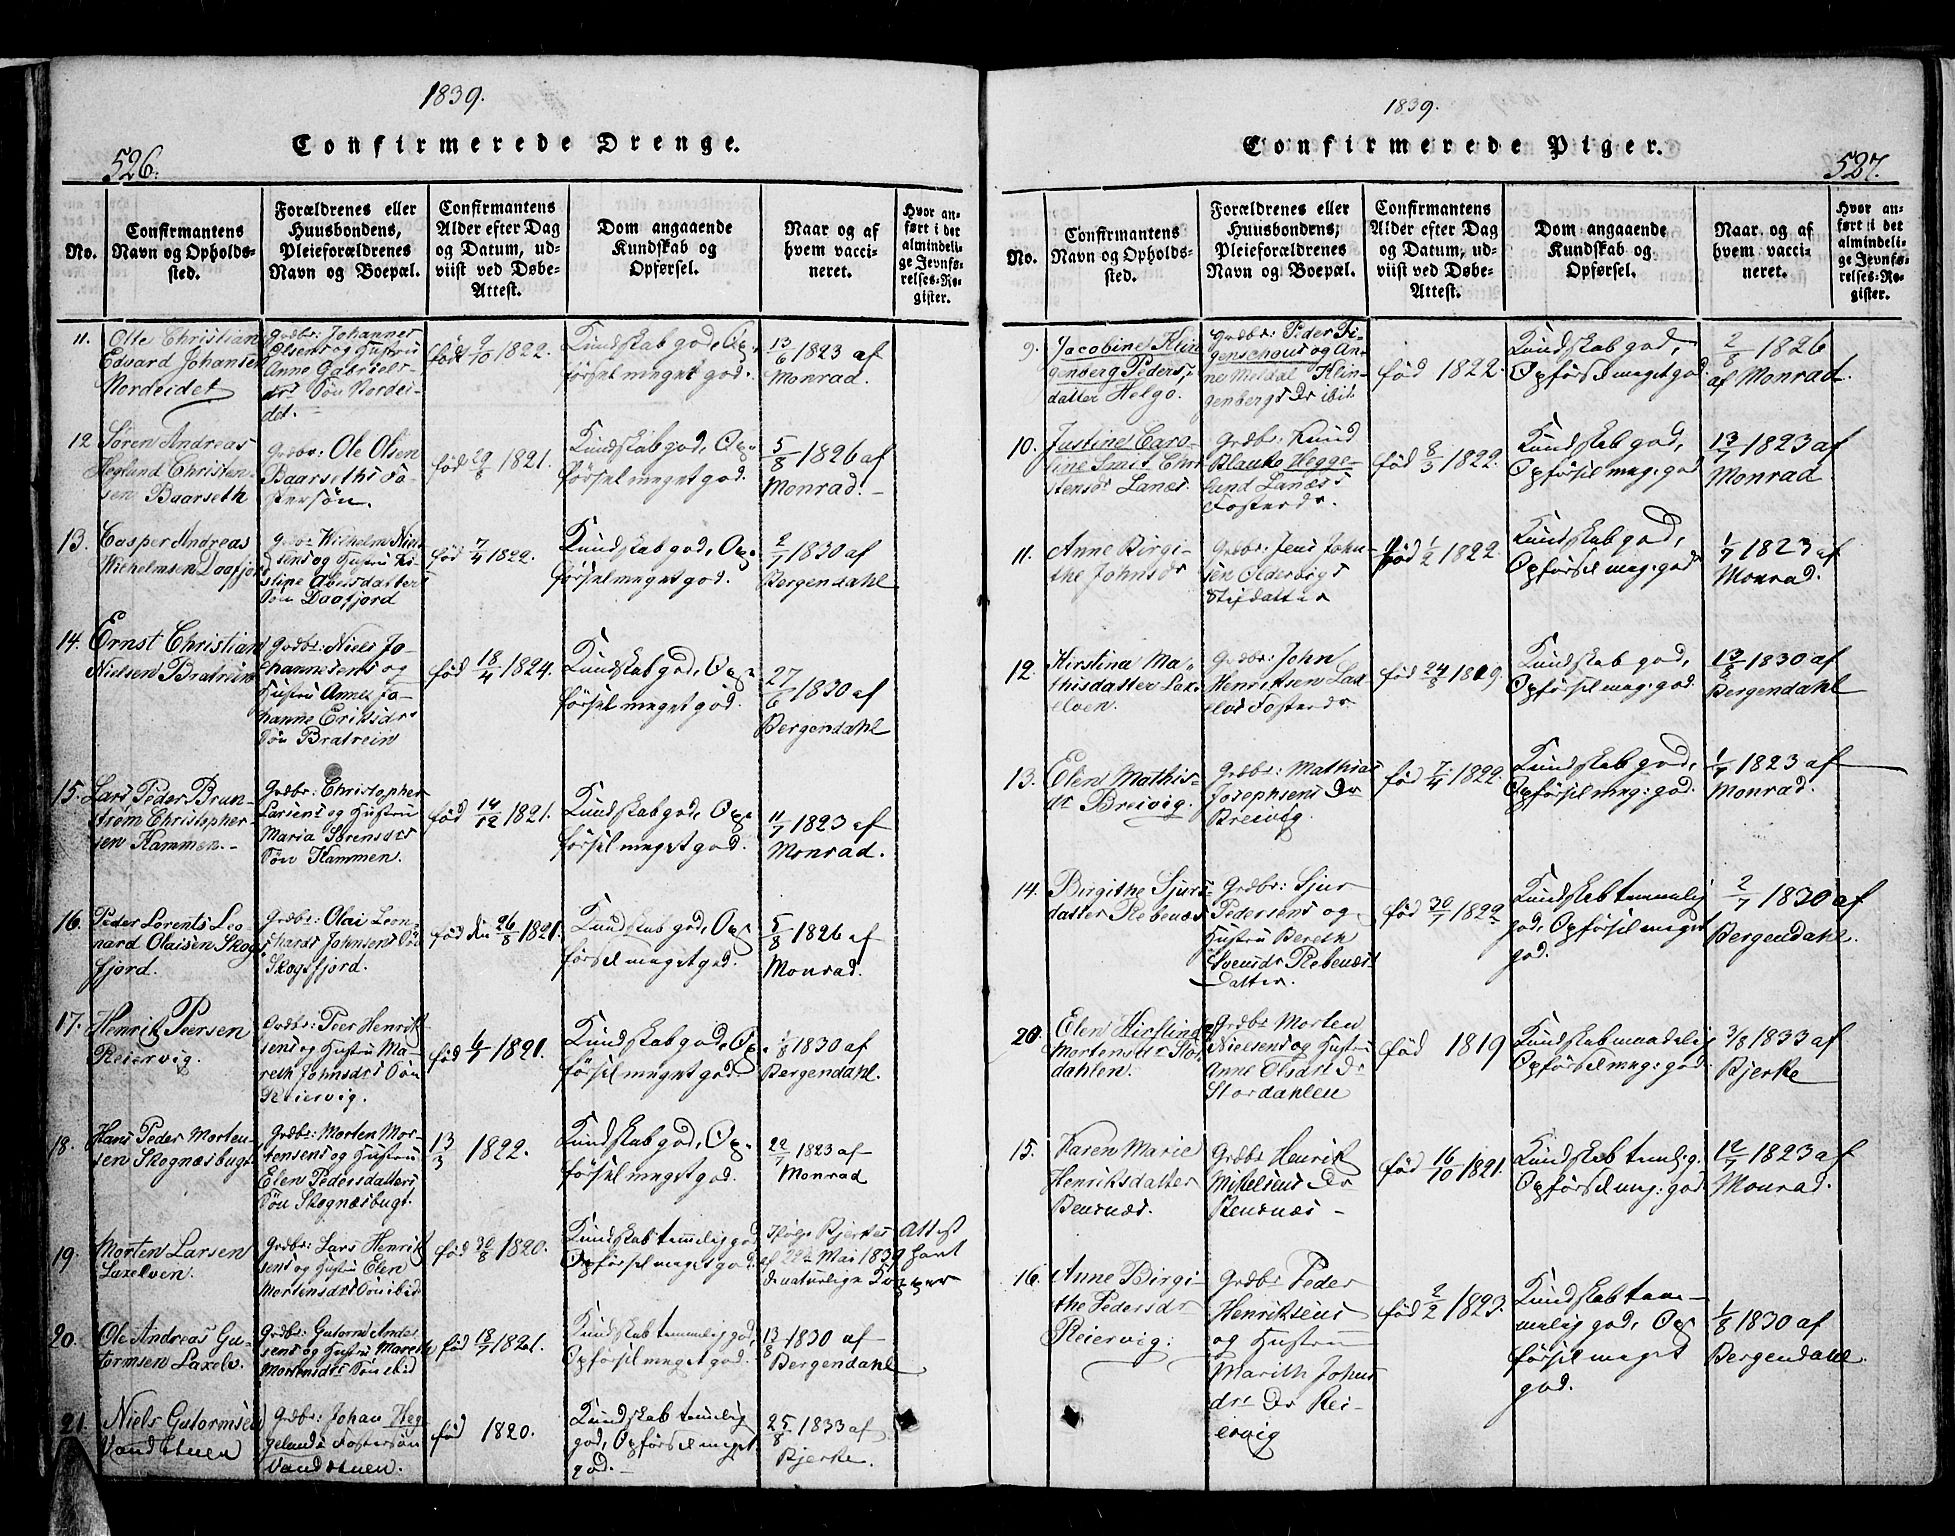 1839.
526.
Confirmerede Drenge.
No.
Confirmantens
Navn og Opholds-
sted.
Forældrenes eller
Huusbondens,
Pleieforældrenes
Navn og Boepæl.
Confirmantens
Alder efter Dag
og Datum, ud-
viist ved Døbe-
Attest.
Dom angaaende
Kundskab og
Opførsel.
Naar og af
hvem vacci-
neret.
Hvor an-
ført i det
almindeli-
ge Jevnfø-
relses-Re-
gister.
11.
Olte Christian
Edvard Johansen
Nordeidet
Grdbr: Johannes
Olsens og Hustru
Anne Gabriels-
drs Søn Nordei-
det.
født 9/10 1822.
Kundskab god, Op-
førsel meget god.
13/6 1823 af
Monrad.
12
Søren Andreas
Hegland Christen-
sen Baarseth
Grdbr: Ole Olsen
Baarseths Fo-
stersøn.
fød 29/8 1821.
Kundskab god, Op-
førsel meget god.
5/8 1826 af
Monrad.
13.
Casper Andreas
Wilhelmsen Daafjord
Grdbr Wilhelm Niel-
sens og Hustru Ki-
stine Abelsdatters
Søn Daafjord
fød 7/4 1822.
Kundskab god, Op-
førsel meget god.
2/7 1830 af
Bergendahl
14.
Ernst Christian
Nielsen Bratrein
Grdbr: Niels Jo-
hannesens og
Hustru Anne Jo-
hanne Eriksdrs
Søn Bratrein
fød 18/4 1824.
Kundskab god, Op-
førsel meget god.
27/6 1830 af
Bergendahl
15.
Lars Peder Brun-
strøm Christopher-
sen Hammen.
Grdbr: Christopher
Larsens og Hustru
Maria Sørensdrs
Søn Hammen.
fød 14/12 1821.
Kundskab god, Op-
førsel meget god.
11/7 1823 af
Monrad.
16.
Peder Lorents Leo-
nard Olaisen Skogs-
fjord.
Grdbr: Olai Leon-
hards Johnsens Søn
Skogsfjord.
fød den 26/8 1821.
Kundskab god, Op-
førsel meget god.
5/8 1826 af
Monrad.
17.
Henrik Peersen
Reiervig.
Grdbr: Peer Henrik-
sens og Hustru Ma-
reth Johnsdrs Søn
Reiervig.
fød 4/7 1821.
Kundskab god, Op-
førsel meget god.
1/8 1830 af
Bergendahl.
18.
Hans Peder Morten-
sen Skognæsbugt
Grdbr: Morten Mor-
tensens og Hustru
Elen Pedersdatters
Søn Skognæsbugt.
13/3 1822.
Kundskab god, Op-
førsel meget god.
22/7 1823 af
Monrad
19.
Morten Larsen
Laxelven.
Grdbr: Lars Henrik-
sens og Hustru Elen
Mortensdrs Søn ibid
fød 30/8 1820.
Kundskab temmelig god
Opførsel meget god.
Ifølge Bjerkes Attest
af 22de Mai 1839 havt
de naturlige Kopper
20.
Ole Andreas Gu-
tormsen Laxelv.
Grdbr: Gutorm Ander-
sens og Hustru Mareth
Mortensdrs Søn ibid
fød 18/7 1821.
Kundskab temmelig god,
Opførsel meget god.
13/8 1830 af
Bergendahl
21.
Niels Gutormsen
Vandstuen
Grdbr: Johan Heg-
gelands Fostersøn
Vandstuen.
fød 1820.
Kundskab temmelig
god, Opførsel meget
god.
25/8 1833 af
Bjerke.
1839.
Confirmerede Piger.
527.
No.
Confirmantens
Navn og Opholds-
sted.
Forældrenes eller
Huusbondens,
Pleieforældrenes
Navn og Boepæl.
Confirmantens
Alder efter Dag
og Datum, ud-
viist ved Døbe-
Attest.
Dom angaaende
Kundskab og
Opførsel.
Naar og af
hvem vacci-
neret.
Hvor an-
ført i det
almindeli-
ge Jevnfø-
relses-Re-
gister.
9.
Jacobine Klin-
genberg Peders-
datter Helgø.
Grdbr: Peder Fi-
genschous og An-
ne Meldal Klin-
genbergs Dr ibid
fød 1822.
Kundskab god,
Opførsel meget god.
2/8 1826
af Monrad.
10.
Justine Caro-
line Smit Chri-
stensdr Lanæs.
Grdbr: Knud
Blauko Hegge-
lund Lanæss
Fosterdr.
fød 8/3 1822.
Kundskab god,
Opførsel meg: god
13/7 1823 af
Monrad
11.
Anne Birgi-
the Johnsdr
Grdbr: Jens John-
sen Oldervigs
Stifdatter
fød 1/2 1822.
Kundskab god,
Opførsel meg: god
1/7 1823 af
Monrad.
12.
Kirstina Ma-
thisdatter Lax-
elven.
Grdbr: John
Henriksen Lax-
elvs Fosterdr.
fød 24/8 1819.
Kundskab god,
Opførsel meg: god.
13/8 1830 af
Bergendahl
13.
Elen Mathis-
dr Breivig.
Grdbr: Mathias
Josephsens Dr
Breivig.
fød 7/4 1822.
Kundskab god,
Opførsel meg: god.
1/7 1823 af
Monrad.
14.
Birgithe Sjurs-
datter Rebenæs
Grdbr: Sjur
Pedersens og
Hustru Bereth
Svensdr Rebenæs
Datter.
fød 30/7 1822
Kundskab temmelig
god, Opførsel meget
god.
2/7 1830 af
Bergendahl.
20.
Elen Kirstina
Mortensdr Stor-
dahlen.
Grdbr Morten
Nielsens og Hustru
Anne Olsdrs Dr
Stordahlen
fød 1819
Kundskab maadelig
Opførsel meg: god.
3/8 1833 af
Bjerke
15.
Karen Marie
Henriksdatter
Bensnæs.
Grdbr Henrik
Mikelsens Dr
Bensnæs
fød 16/10 1821.
Kundskab temlig.
Opførsel meg: god
12/7 1823 af
Monrad.
16.
Anne Birgi-
the Pedersdr
Reiervig.
Grdbr Peder
Henriksens
og Hustru
Marith Johns
drs Dr Rei-
ervig
fød 2/2 1823.
Kundskab tem-
melig god, Op-
førsel meget
god.
1/8 1830 af
Bergendahl.